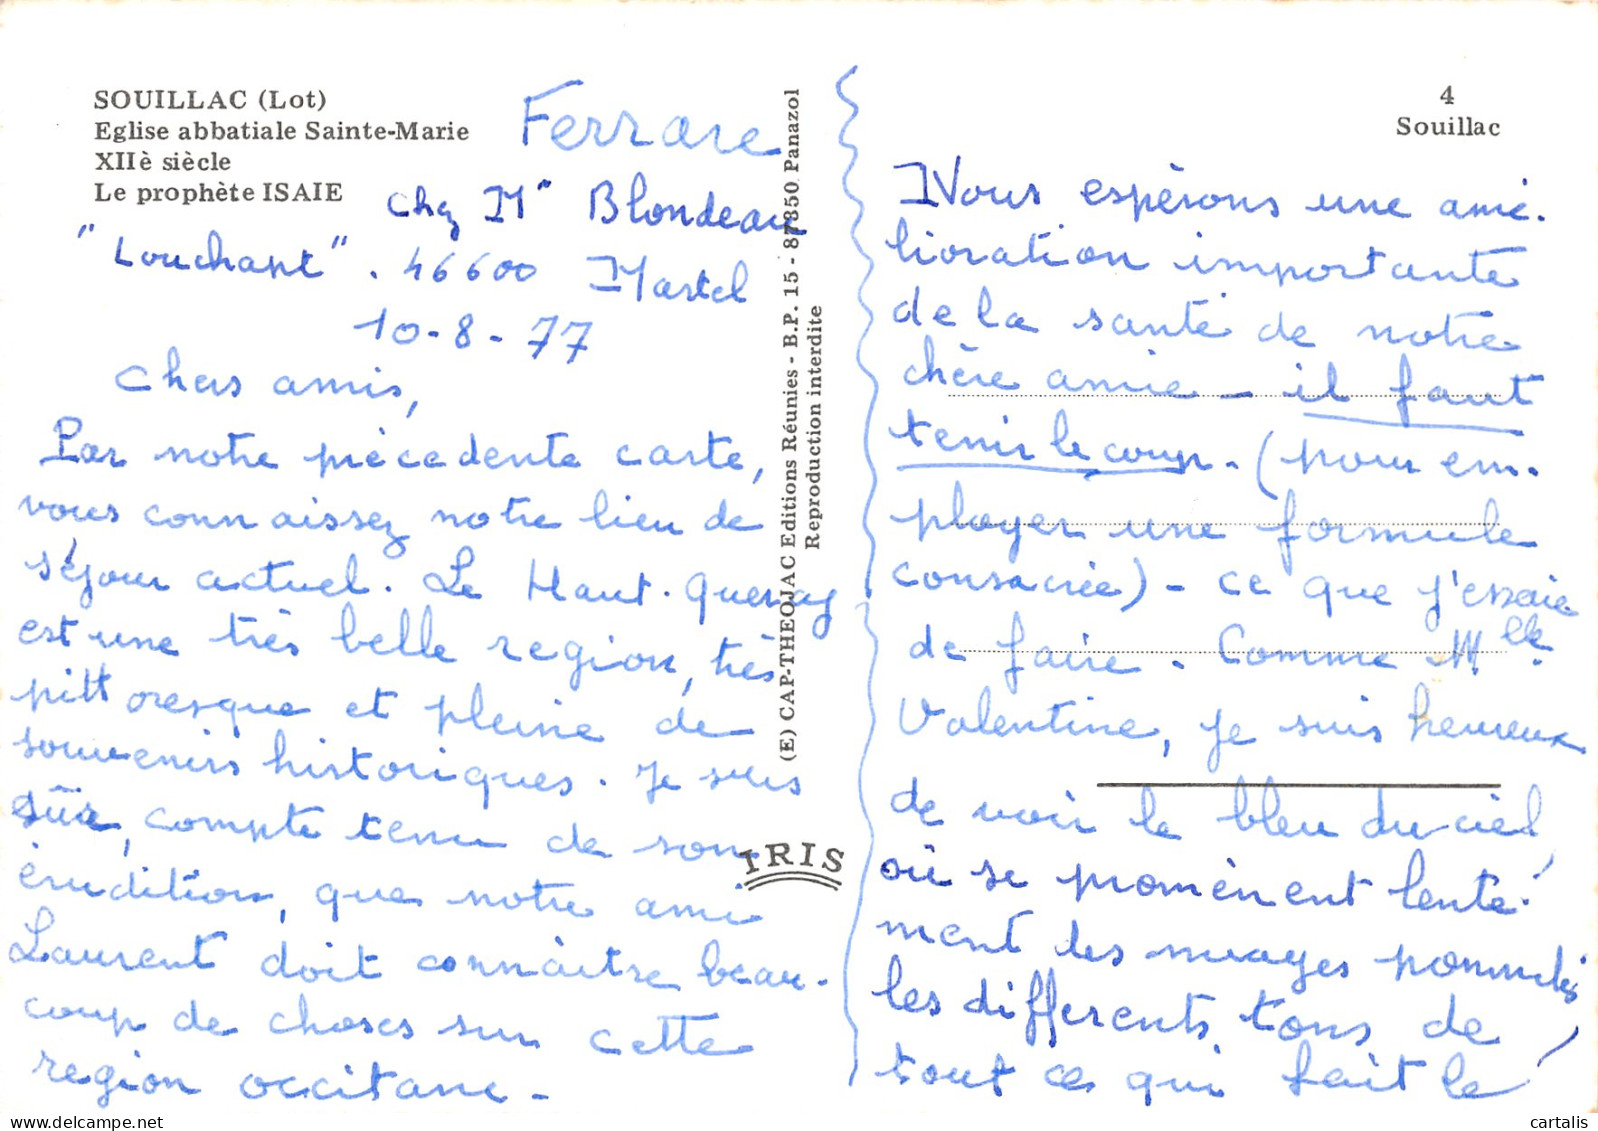 SOUILLAC (Lot)
Eglise abbatiale Sainte-Marie
XIIè siècle
Le prophète ISAIE
Ferrare
chez Mr Blondeau
"Louchapt". 46600 Martel
10-8-77
Chers amis,
Par notre précédente carte,
vous connaissez notre lieu de
séjour actuel. Le Haut-Quercy
est une très belle region, très
pittoresque et pleine de
souvenirs historiques. Je suis
sûr, compte tenu de son
érudition, que notre ami
Laurent doit connaître beau-
coup de choses sur cette
region occitane.-
(E) CAP-THEOJAC Editions Réunies - B.P. 15 - 87350 Panazol
Reproduction interdite
IRIS
4
Souillac
Nous espérons une amé-
lioration importante
de la santé de notre
chère amie - il faut
tenir le coup. (pour em-
ployer une formule
consacrée) - ce que j'essaie
de faire. Comme Melle
Valentine, je suis heureux
de voir le bleu du ciel,
où se promènent lente-
ment les nuages pommelés,
les différents tons de
tout ce qui fait le
cartalis
www.delcampe.net